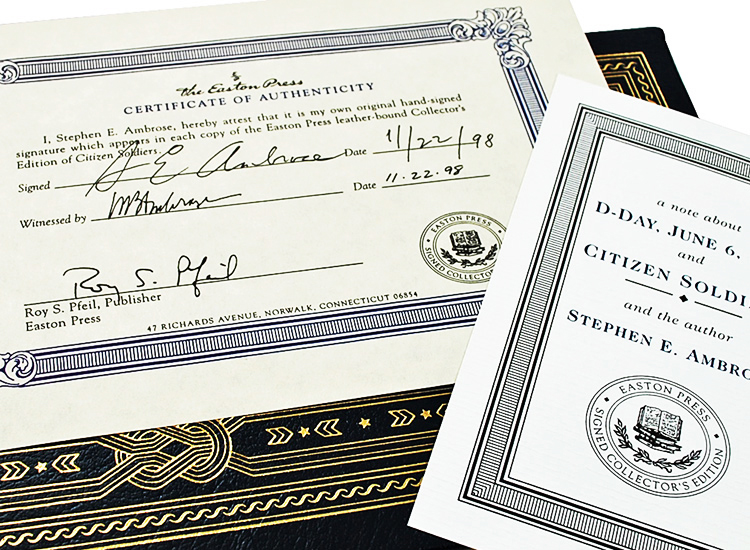 the Easton Press
CERTIFICATE OF AUTHENTICITY
I, Stephen E. Ambrose, hereby attest that it is my own original hand-signed
signature which appears in each copy of the Easton Press leather-bound Collector's
Edition of Citizen Soldiers.
Signed S E Ambrose Date 11/22/98
Witnessed by Date 11.22.98
EASTON PRESS
SIGNED COLLECTOR'S
Roy S. Pfeil
Roy S. Pfeil, Publisher
Easton Press
47 RICHARDS AVENUE, NORWALK, CONNECTICUT 06854
a note about
D-DAY, JUNE 6,
and
CITIZEN SOLDI
and the author
STEPHEN E. AMBRO
EASTON PRESS
SIGNED COLLECTOR'S EDITION